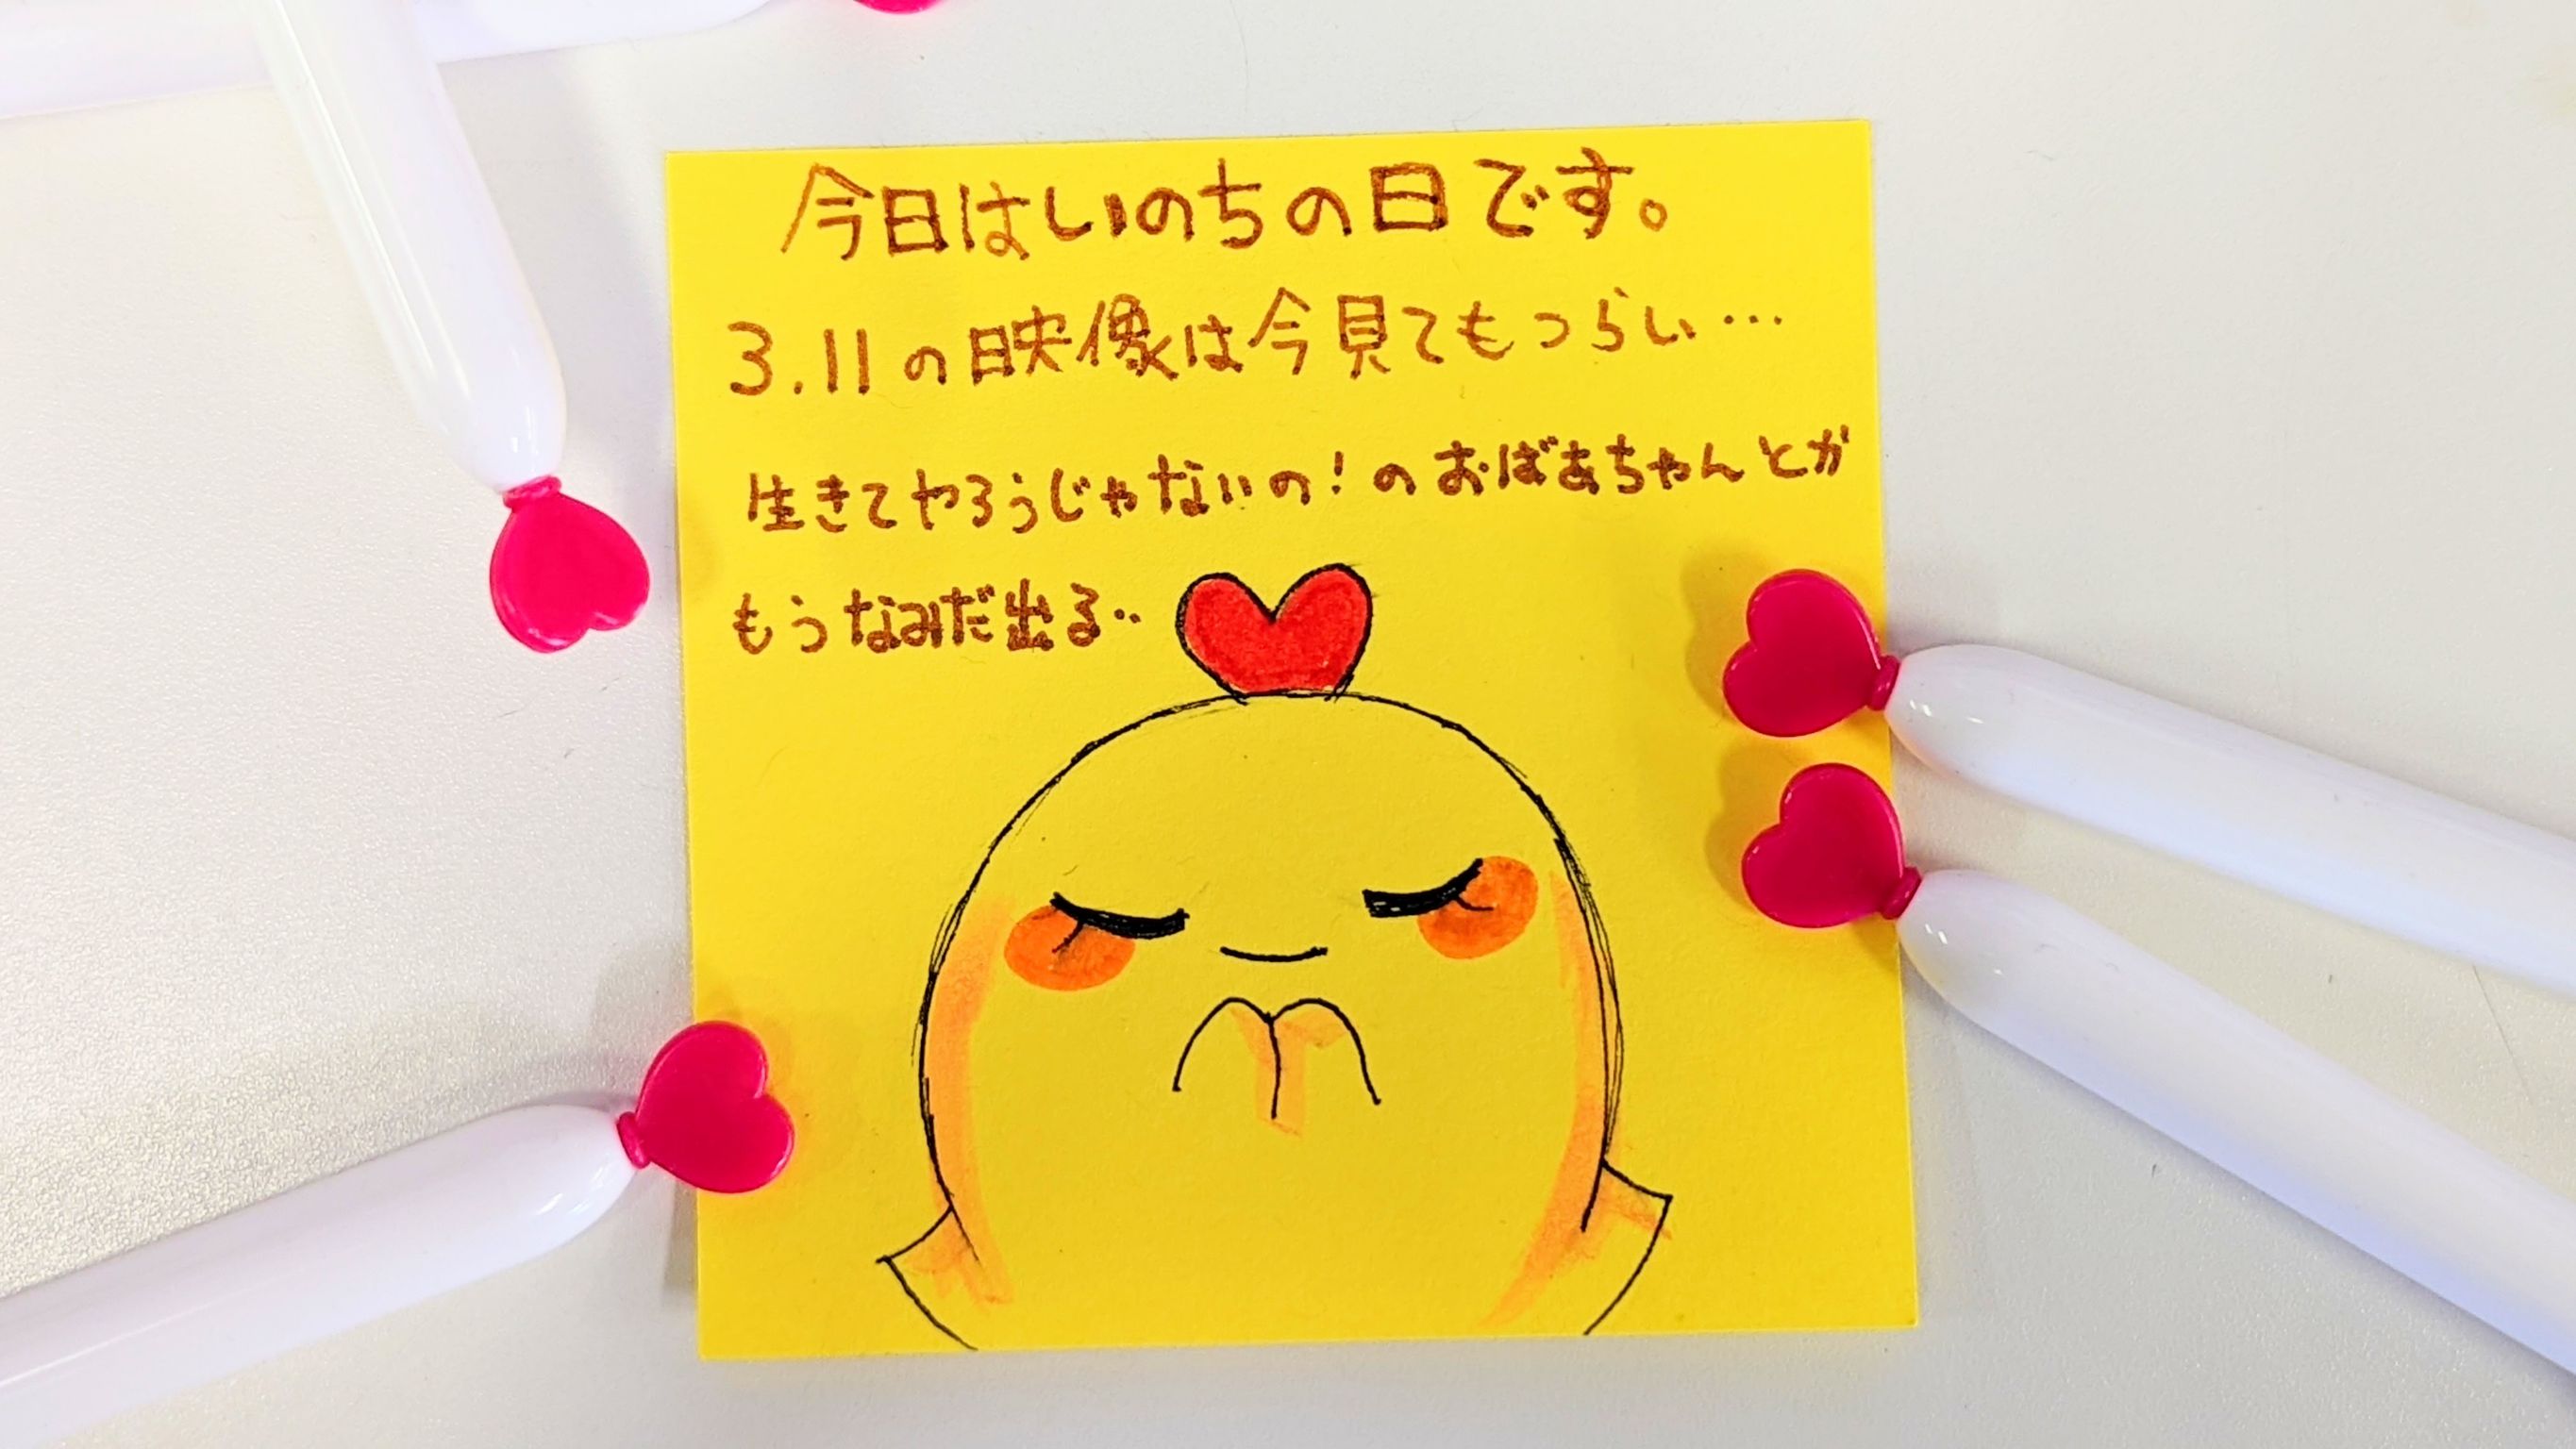 今日はいのちの日です。
3.11の映像は今見てもつらい…
生きてやろうじゃないの！のおばあちゃんとか
もうなみだ出る‥